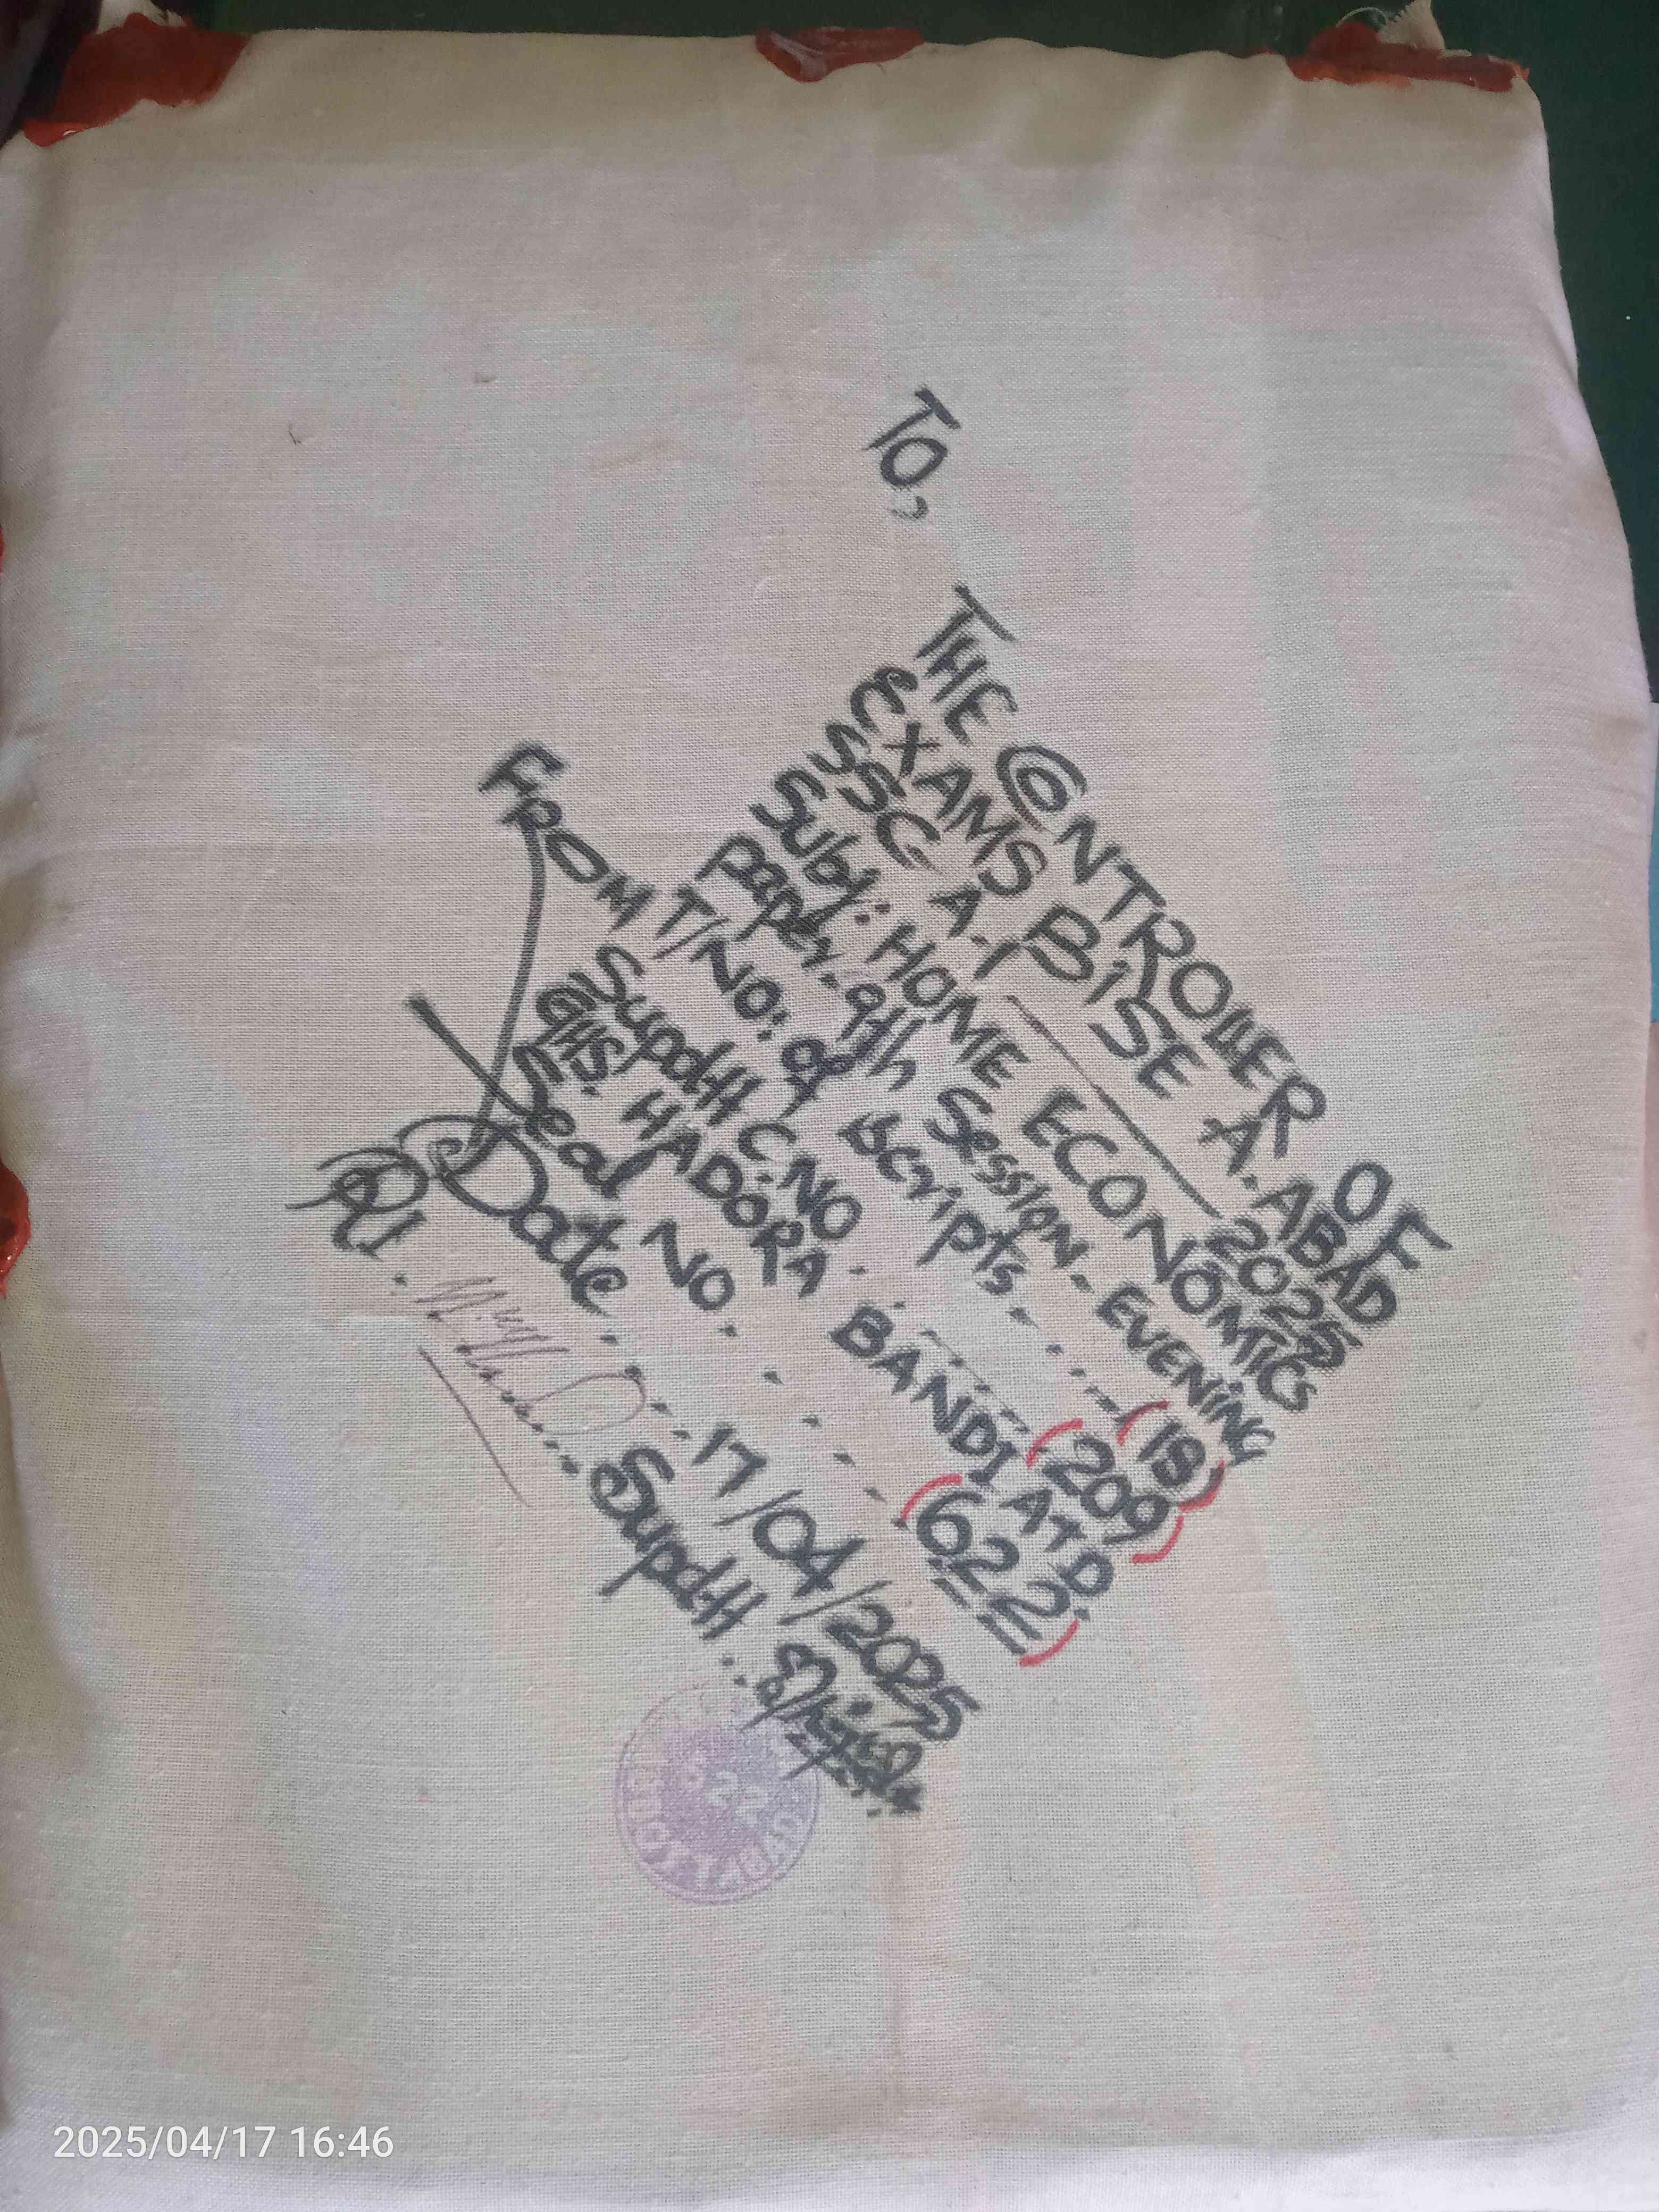 TO,
THE CONTROLLER OF
EXAMS BISE A.ABAD
SSC A-I 2025
Subj: HOME ECONOMICS
Paper. 9th Session. EVENING
T/NO: of scripts. (18)
FROM
Supdtt C.NO. (209)
GHS. HADORA BANDI ATD.
Seal NO. (622)
Date. 17/04/2025
RI. Supdtt
622
2025/04/17 16:46